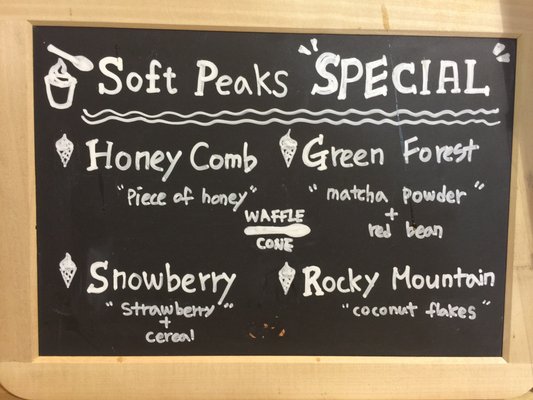 Soft Peaks SPECIAL
Honey Comb
"Piece of honey"
Green Forest
"matcha powder"
+
red bean
WAFFLE
CONE
Snowberry
"strawberry"
+
cereal
Rocky Mountain
"coconut flakes"